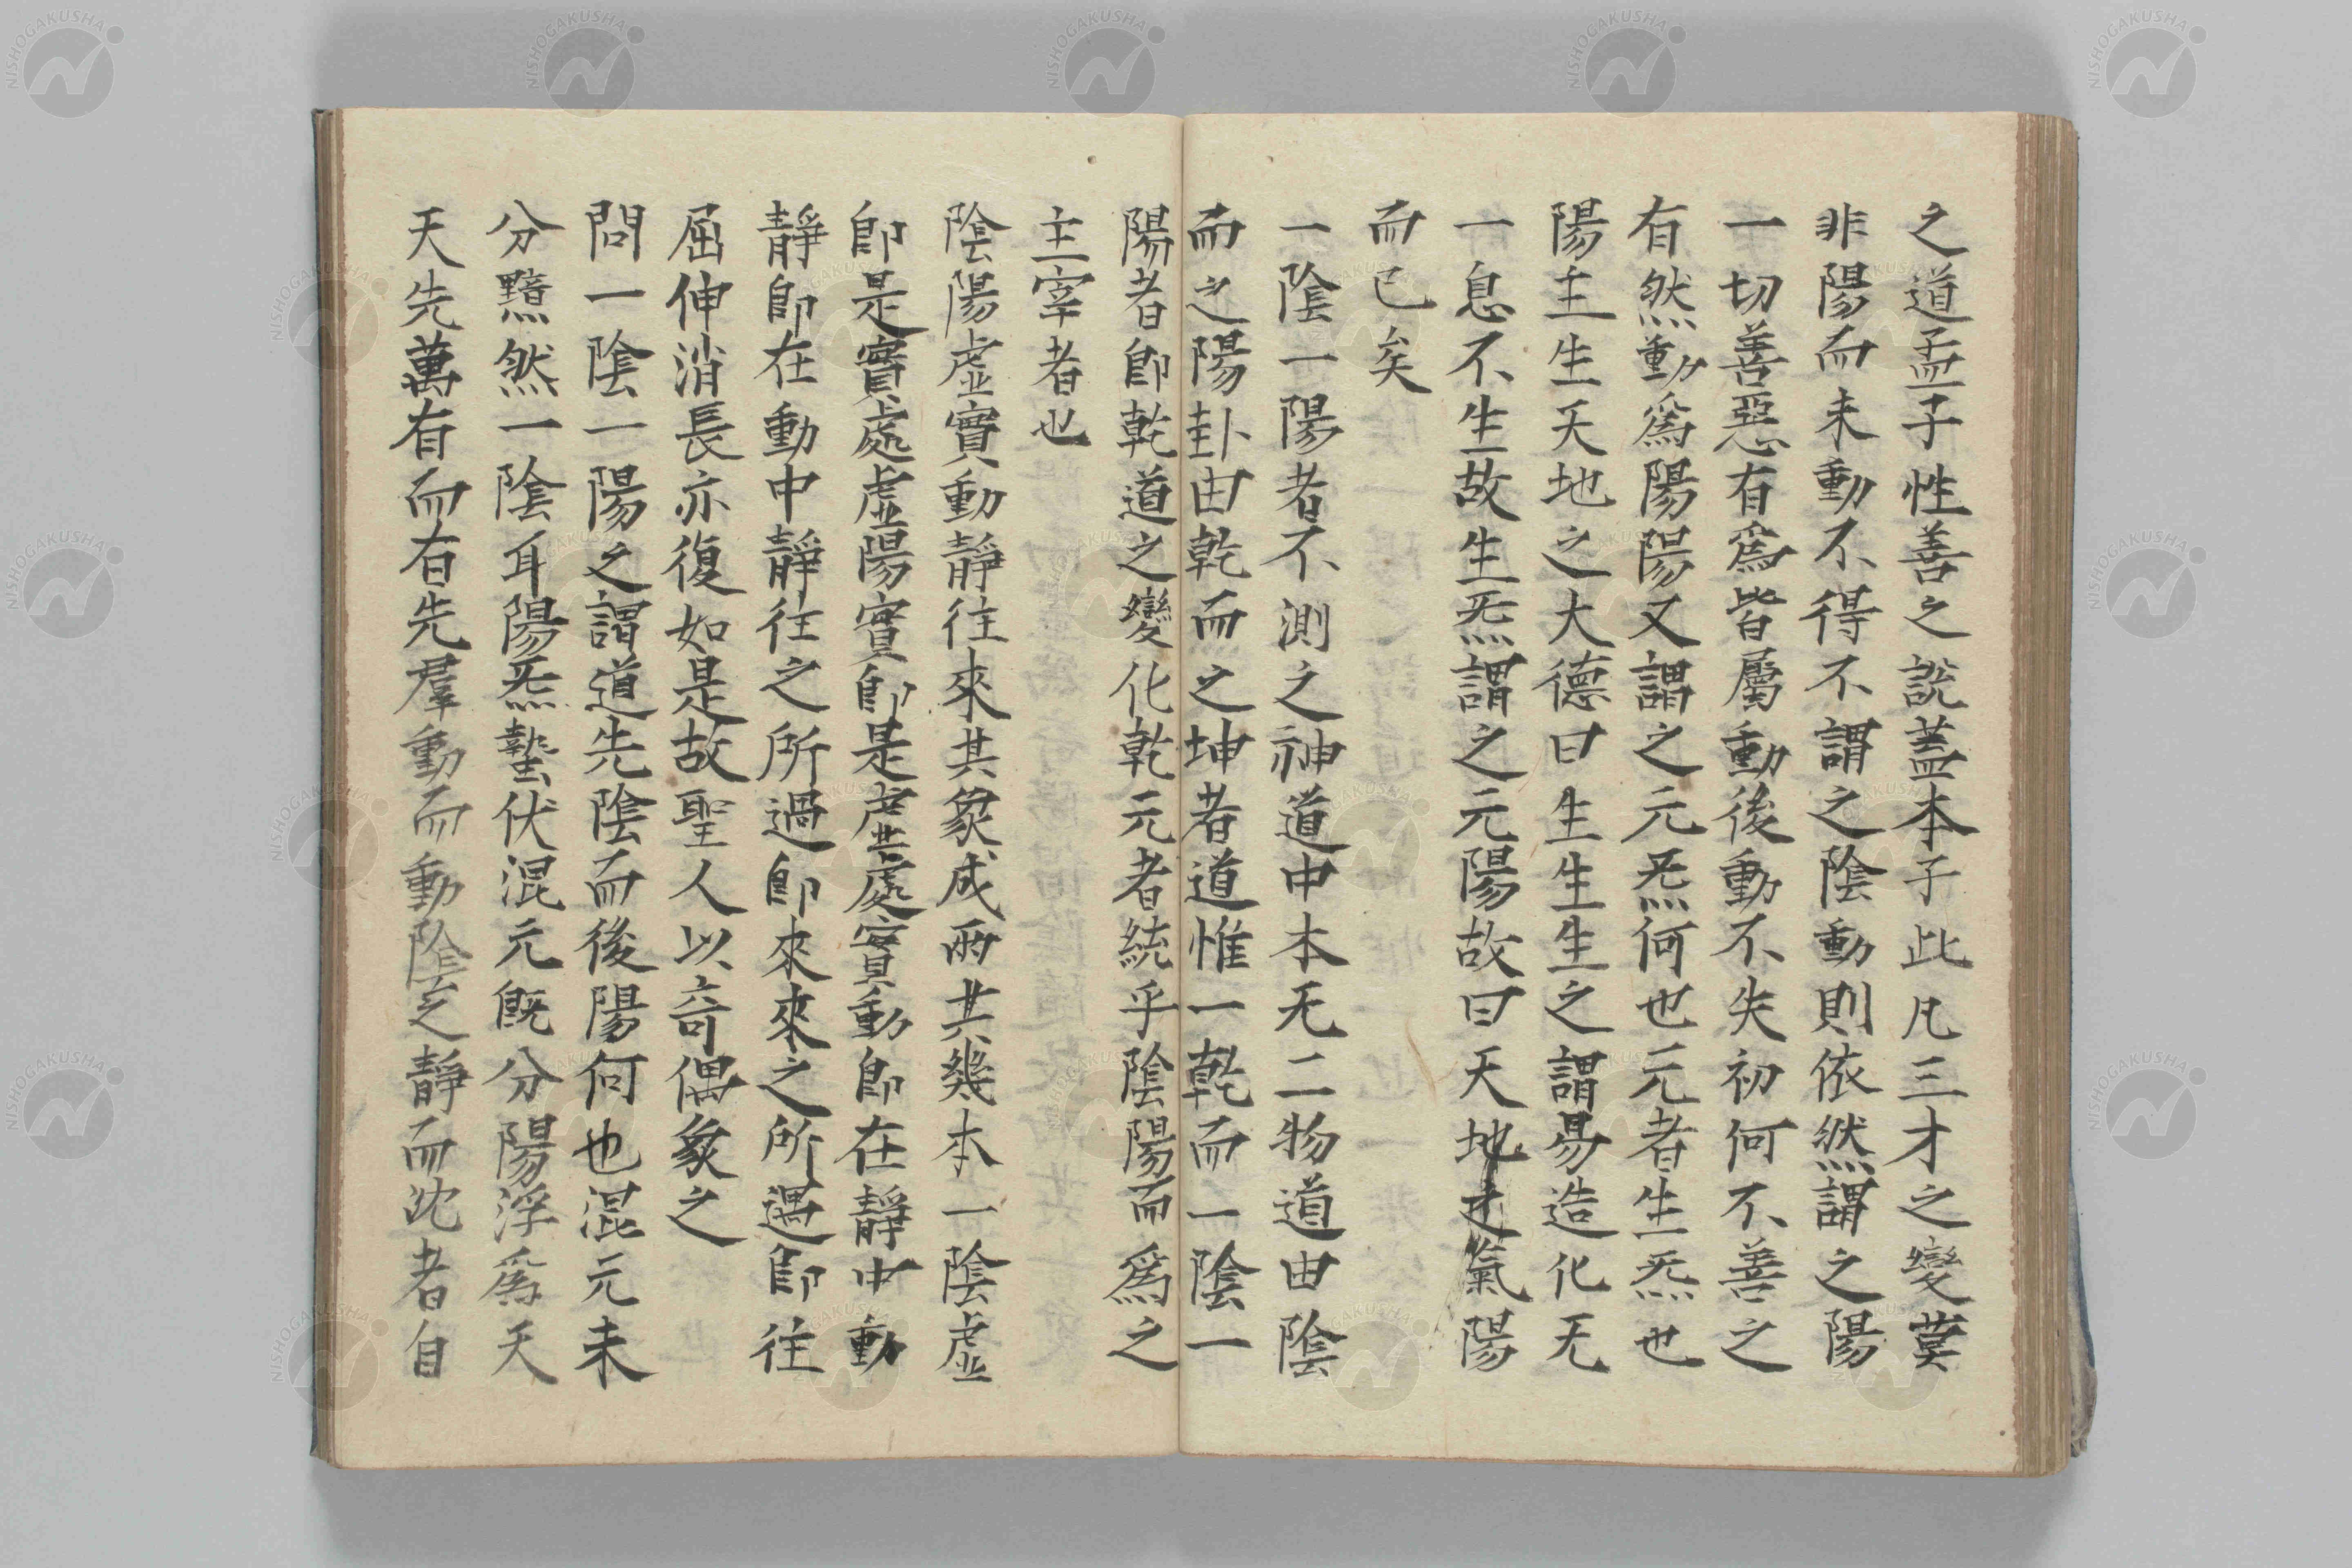 之道孟子性善之說蓋本子此凡三才之變莫
非陽而未動不得不謂之陰動則依然謂之陽
一切善惡有爲皆屬動後動不失初何不善之
有然動爲陽陽又謂之元炁何也元者生炁也
陽主生天地之大德曰生生生之謂易造化无
一息不生故生炁謂之元陽故曰天地之氣陽
而已矣
一陰一陽者不測之神道中本无二物道由陰
而之陽卦由乾而之坤者道惟一乾而一陰一
陽者卽乾道之變化乾元者統乎陰陽而爲之
主宰者也
陰陽虛實動靜往來共象成兩共幾本一陰虛
卽是實處虛陽實卽是虛處實動卽在靜中動
靜卽在動中靜往之所過卽來來之所遇卽往
屈伸消長亦復如是故聖人以奇偶象之
問一陰一陽之謂道先陰而後陽何也混元未
分黯然一陰耳陽炁蟄伏混元旣分陽浮爲天
天先萬有而有先羣動而動陰之靜而沈者自
NISHOGAKUSHA